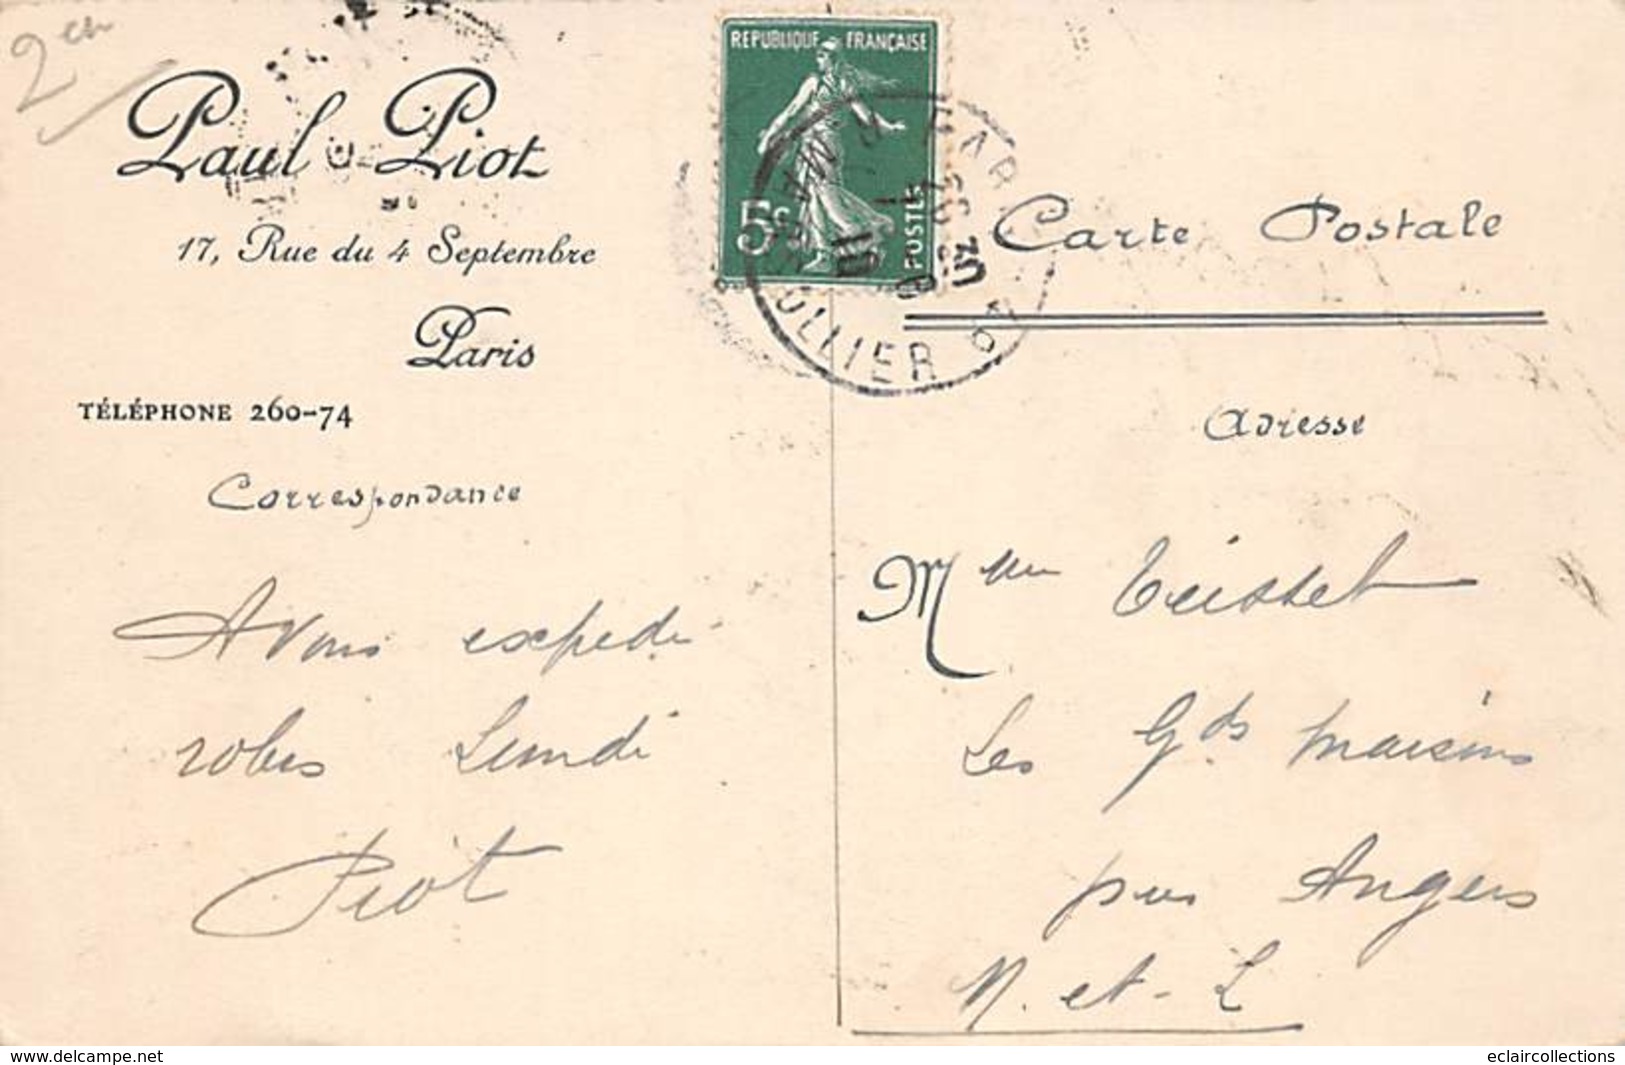 2
Paul Piot
17, Rue du 4 Septembre
Paris
TÉLÉPHONE 260-74
Correspondance
A Vous expedi
robes Lundi
Piot
REPUBLIQUE FRANÇAISE
5c POSTES
OLLIER 69
Carte Postale
Adresse
Mme Teisset
Les Gds Maisons
près Angers
M. et L
delcampe.net
eclaircollections